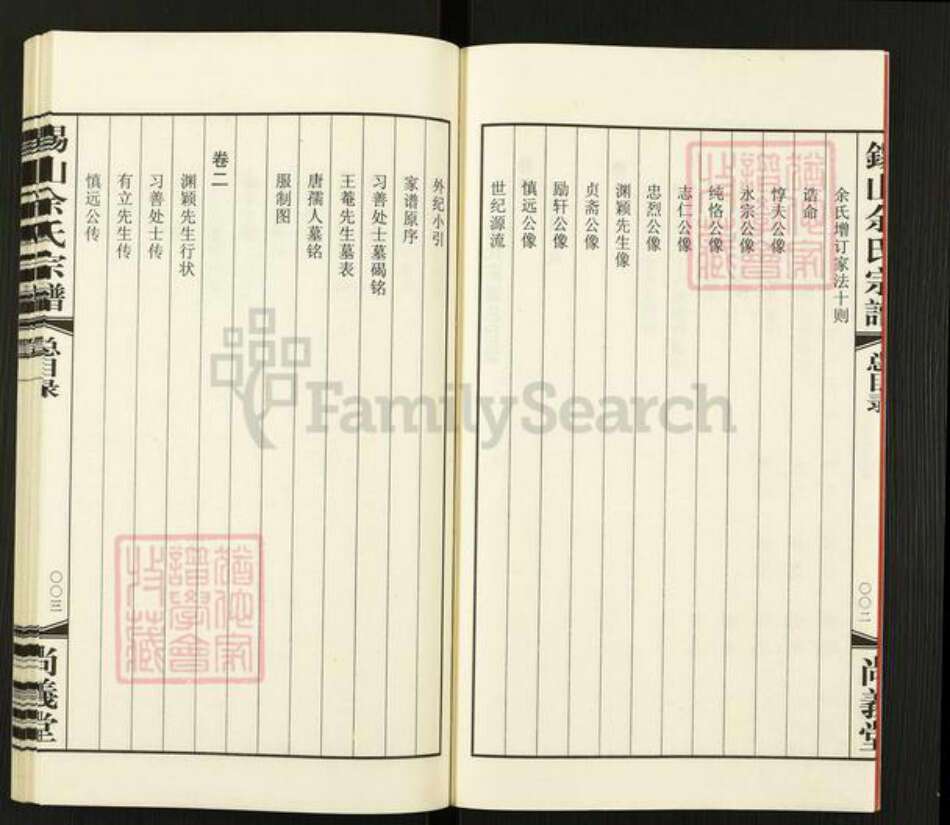 锡山余氏宗谱
总目录
〇〇二
尚义堂
余氏增订家法十则
诰命
惇夫公像
永宗公像
纯恪公像
志仁公像
忠烈公像
渊颖先生像
贞斋公像
励轩公像
慎远公像
世纪源流
外纪小引
家谱原序
习善处士墓碣铭
王菴先生墓表
唐孺人墓铭
服制图
卷二
渊颖先生行状
习善处士传
有立先生传
慎远公传
锡山余氏宗谱
总目录
〇〇三
尚义堂
FamilySearch